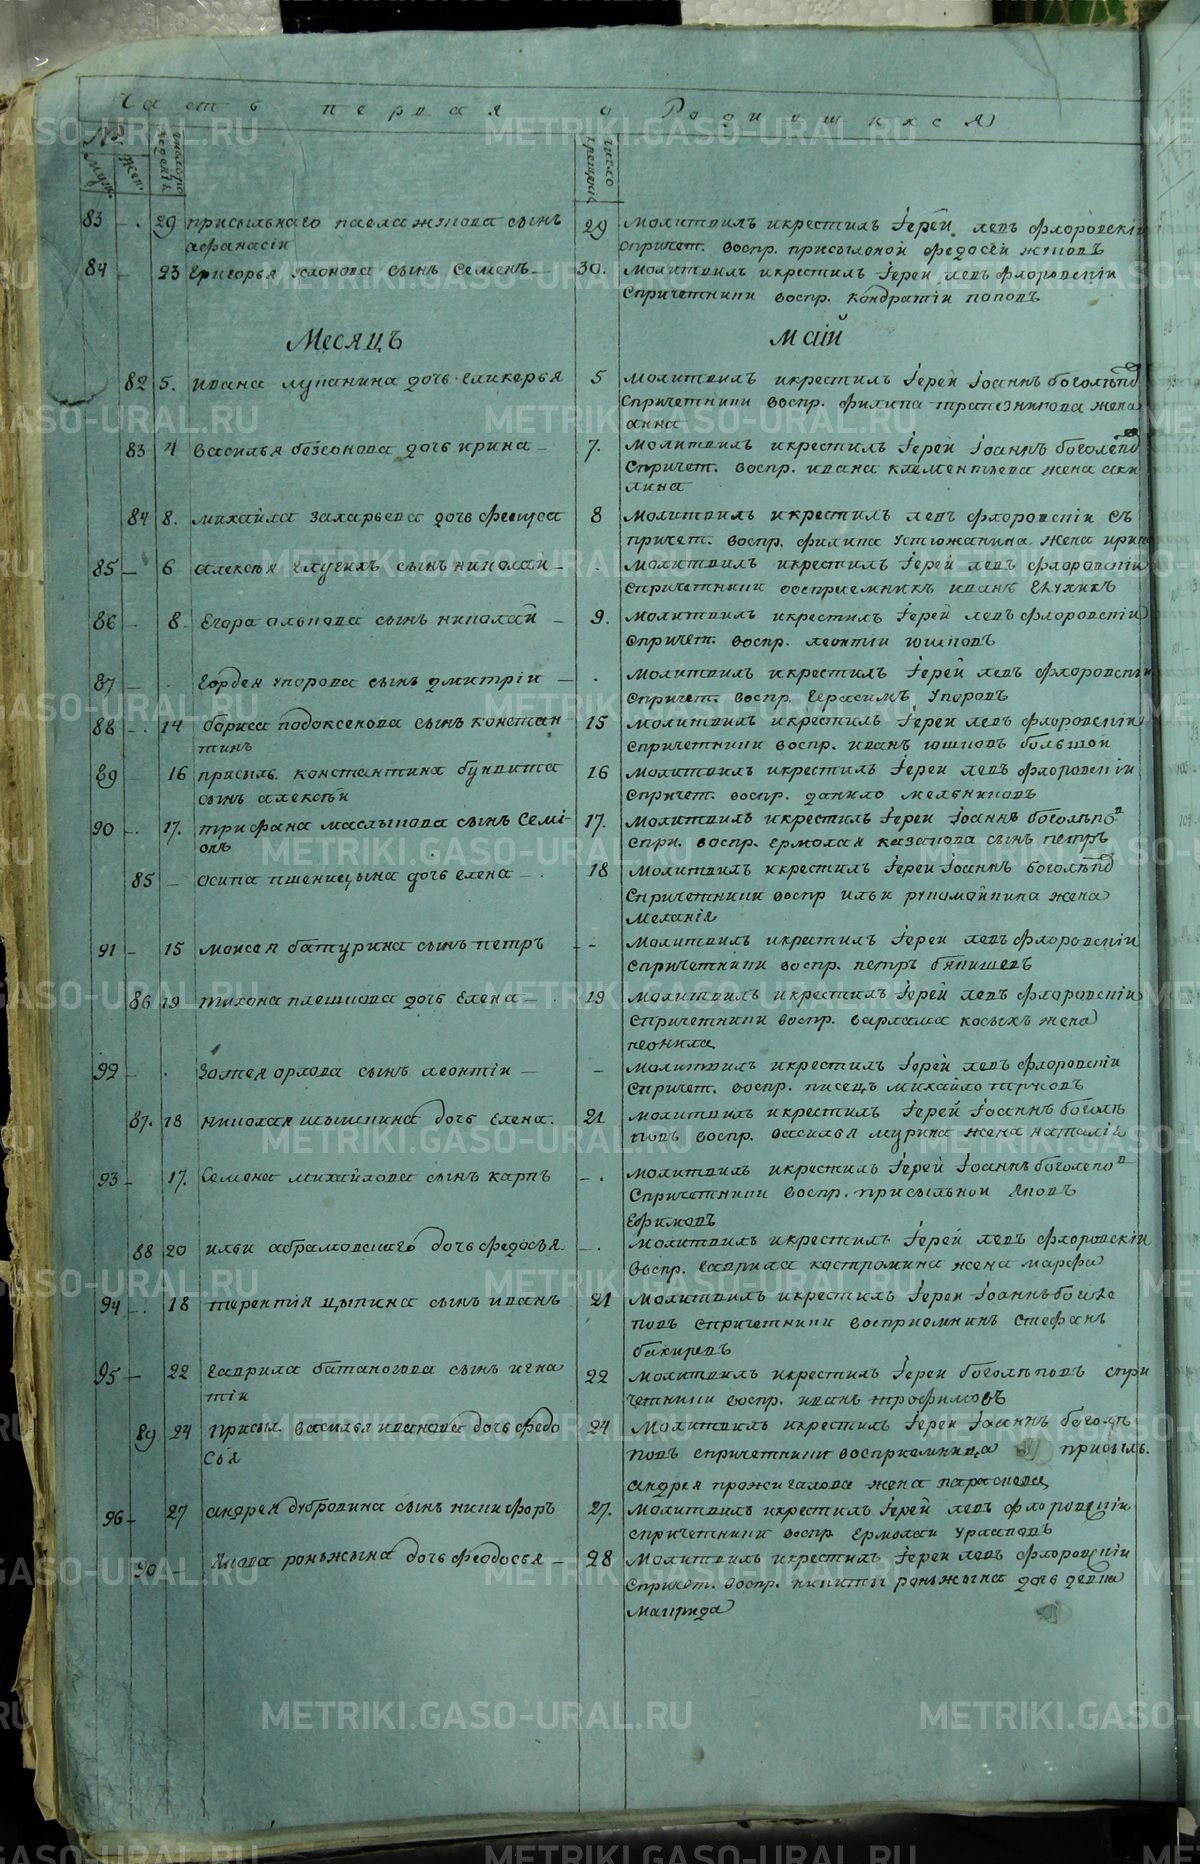 Часть первая о Родившихся
№
муж.
жен.
число рождені
число крещені
83 -. 29 присыльнаго павла жтова сынъ
афанасіи
29 молитвилъ икрестилъ Іерей левъ флоровскіи
спричет. воспр. присылной федосей жтовъ
84 - 23 Григорья сынъ Семенъ
30. молитвилъ икрестилъ Іерей левъ флоровскіи
спричетники воспр. кондратіи поповъ
Месяцъ маій
82 5. ивана лупанина дочь гликерья
5 молитвилъ икрестилъ Іерей Іоаннъ боголѣпо
спричетники воспр. филипа трапезникова жена
анна
83 4 василья безсонова дочь ирина
7. молитвилъ икрестилъ Іерей Іоаннъ боголѣпо
спричет. воспр. ивана клементьева жена аки
лина
84 8. михайла захарьева дочь феклса
8 молитвилъ икрестилъ левъ флоровскіи съ
причет. воспр. филипа устюжанина жена ирин
85 - 6 алексѣя сынъ николаи
молитвилъ икрестилъ Іерей левъ флоровскіи
спричетники восприемникъ иванъ
86 8. Егора сынъ николай
9. молитвилъ икрестилъ Іерей левъ флоровскіи
спричет. воспр. леонтіи юшковъ
87 - . гордея упорова сынъ дмитріи
. молитвилъ икрестилъ Іерей левъ флоровскіи
спричет. воспр. Герасимъ Упоровъ
88 -. 14 бориса подоксенова сынъ констан
тинъ
15 молитвилъ икрестилъ Іереи левъ флоровскіи
спричетники воспр. иванъ юшковъ большои
89 16 присыл. константина сынъ алексѣи
16 молитвилъ икрестилъ Іереи левъ флоровскіи
спричет. воспр. данило мельниковъ
90 -. 17. трифана маслыкова сынъ Семі
онъ
17. молитвилъ икрестилъ Іереи Іоаннъ боголѣпов
спри. воспр. ермолая казакова сынъ петръ
85 - осипа пшеницына дочь елена
18 молитвилъ икрестилъ Іереи Іоаннъ боголѣпо
спричетники воспр ильи рукомойкина жена
меланія
91 - 15 моисея батурина сынъ петръ
-- молитвилъ икрестилъ Іереи левъ флоровскіи
спричетники воспр. петръ
86 19 тихона плешкова дочь елена
19 молитвилъ икрестилъ Іерей левъ флоровскіи
спричетники воспр. варлама косыхъ жена
неонила
92 - . Зотея орлова сынъ леонтіи
- молитвилъ икрестилъ Іерей левъ флоровскіи
спричет. воспр. писецъ михайло
87. 18 николая шышкина дочь елена.
21 молитвилъ икрестилъ Іерей Іоаннъ боголѣ
повъ воспр. василья мурина жена наталіи
93 - 17. Семена михайлова сынъ карпъ
-. молитвилъ икрестилъ Іерей Іоаннъ боголепов
спричетники воспр. присыльной яковъ
Ефимовъ
88 20 ильи абрамовскаго дочь федосья.
-. молитвилъ икрестилъ Іерей левъ флоровскіи
воспр. гаврила костромина жена марфа
94 -. 18 терентія цыпина сынъ иванъ
21 молитвилъ икрестилъ Іереи Іоаннъ боголе
повъ спричетники восприемникъ стефанъ
бакиревъ
95 - 22 гаврила батаногова сынъ игна
тіи
22 молитвилъ икрестилъ Іереи боголѣповъ спри
четники воспр. иванъ трофимовъ
89 24 присыл. василья иванова дочь федо
сья
24 молитвилъ икрестилъ Іереи Іоаннъ боголѣ
повъ спричетники восприемница присыль.
андрея прожигалова жена параскева
96 - 27 андрея дубровина сынъ никифоръ
27. молитвилъ икрестилъ Іерей левъ флоровскіи
спричетники воспр ермолаи урлаповъ
90 - якова роньжына дочь феодосья
28 молитвилъ икрестилъ Іереи левъ флоровскіи
спричет. воспр. никиты роньжына дочь девка
макрида